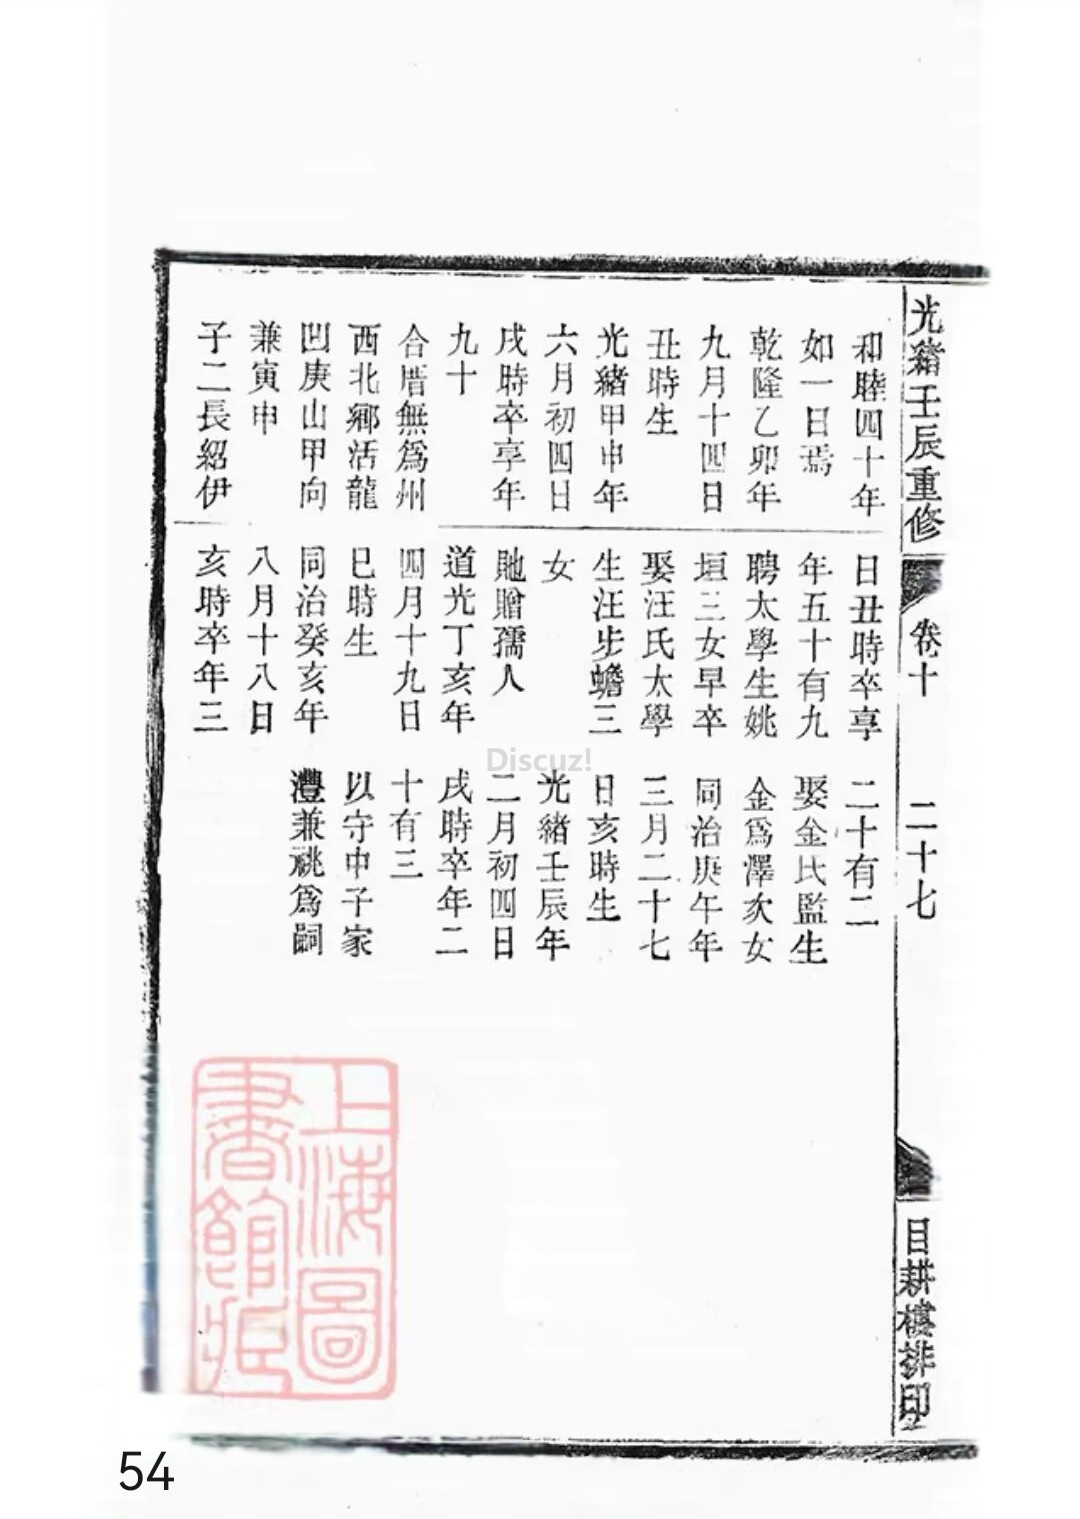 光緒壬辰重修
卷十
二十七
目耕樓排印
和睦四十年
如一日焉
乾隆乙卯年
九月十四日
丑時生
光緒甲申年
六月初四日
戌時卒享年
九十
合厝無爲州
西北鄉活龍
凹庚山甲向
兼寅申
子二長紹伊
日丑時卒享
年五十有九
聘太學生姚
垣三女早卒
娶汪氏太學
生汪步蟾三
女
貤贈孺人
道光丁亥年
四月十九日
巳時生
同治癸亥年
八月十八日
亥時卒年三
二十有二
娶金氏監生
金爲澤次女
同治庚午年
三月二十七
日亥時生
光緒壬辰年
二月初四日
戌時卒年二
十有三
以守中子家
灃兼祧爲嗣
Discuz!
上海圖
書館藏
54